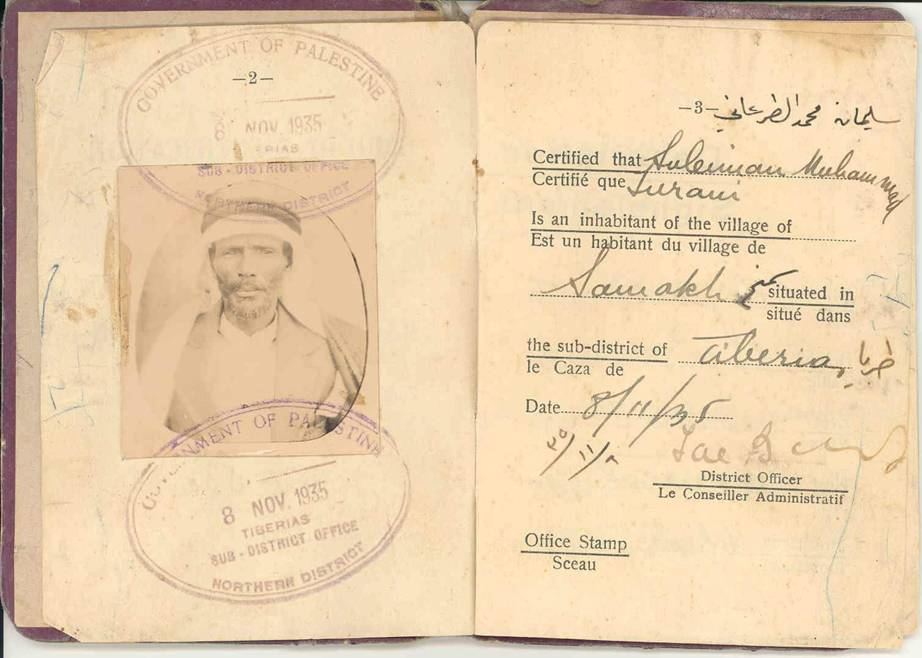 GOVERNMENT OF PALESTINE
—2—
8 NOV. 1935
SUB-DISTRICT OFFICE
NORTHERN DISTRICT
GOVERNMENT OF PALESTINE
8 NOV. 1935
TIBERIAS
SUB-DISTRICT OFFICE
NORTHERN DISTRICT
—3—
سليمان محمد
Certified that Suleiman Muhammad
Certifié que Surani
Is an inhabitant of the village of
Est un habitant du village de
Samakh سمخ situated in
situé dans
the sub-district of Tiberias طبريا
le Caza de
Date 8/11/35
٨/١١/٣٥
District Officer
Le Conseiller Administratif
Office Stamp
Sceau